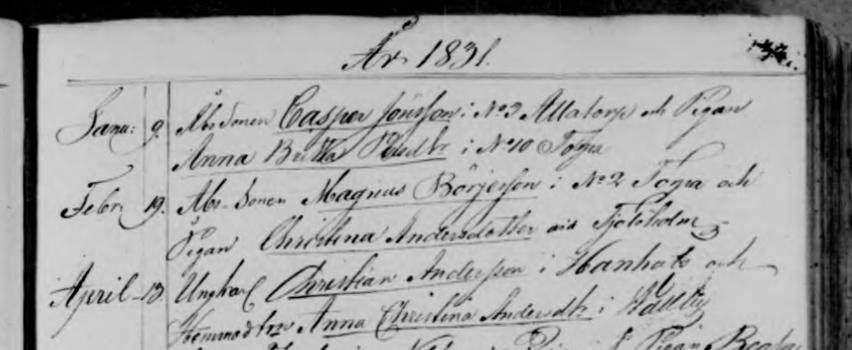 År 1831.
Janu: 9. Åbosonen Casper Jönsson i No 3 Allatorp och Pigan
Anna Britta i No 10 Torpa
Febr 19. Åbo-Sonen Magnus Börjesson i No 2 Torpa och
Pigan Christina Andersdotter vid Tjolöholm
April 13. Ungkarl Christian Andersson i Hanhals och
Hemmadtr Anna Christina Andersdtr i
Pigan